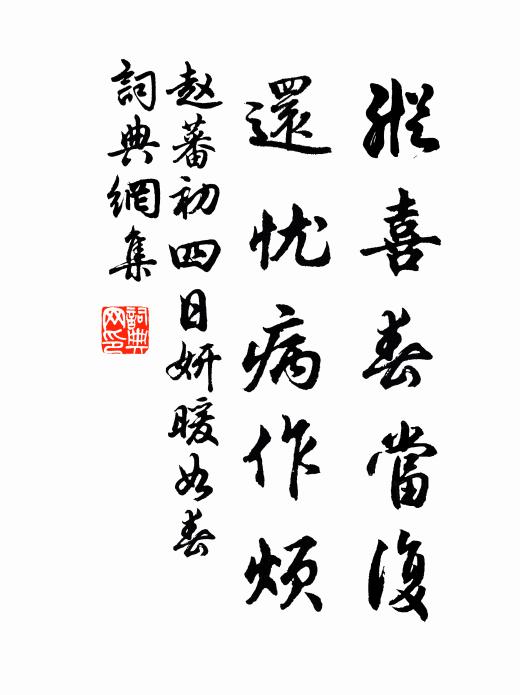 縱喜春當復
還忧病作烦
赵蕃初四日妍暖如春
詞典網集
詞典网印